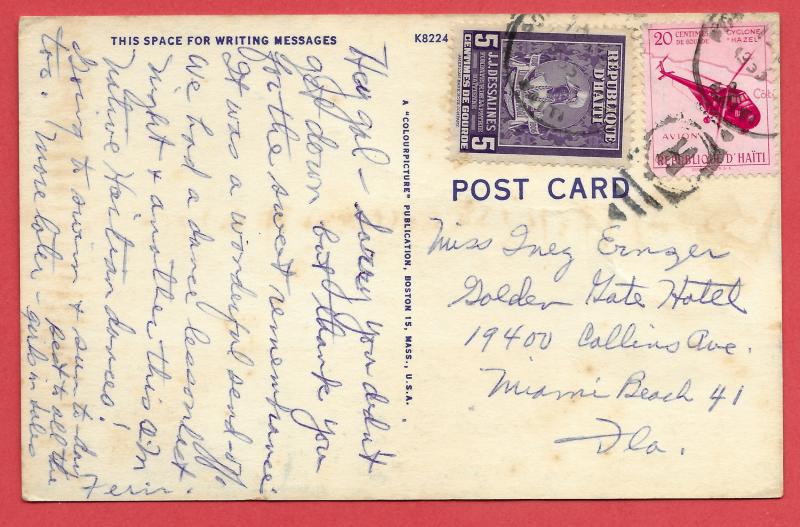 THIS SPACE FOR WRITING MESSAGES
K8224
Hey gal - Sorry you didn't
get down but thank you
for the sweet remembrance.
It was a wonderful send-off.
We had a dance lesson last
night & another this am
Native Haitian dances!
Going to swim & sun to-day
too. More later -
best to all the
girls in sales
A "COLOURPICTURE" PUBLICATION, BOSTON 15, MASS., U.S.A.
5 J.J. DESSALINES 5
CENTIMES DE GOURDE
REPUBLIQUE D'HAITI
20 CENTIMES DE GOURDE
CYCLONE "HAZEL"
AVION
REPUBLIQUE D'HAÏTI
POST CARD
Miss Inez Ernzer
Golden Gate Hotel
19400 Collins Ave.
Miami Beach 41
Fla.